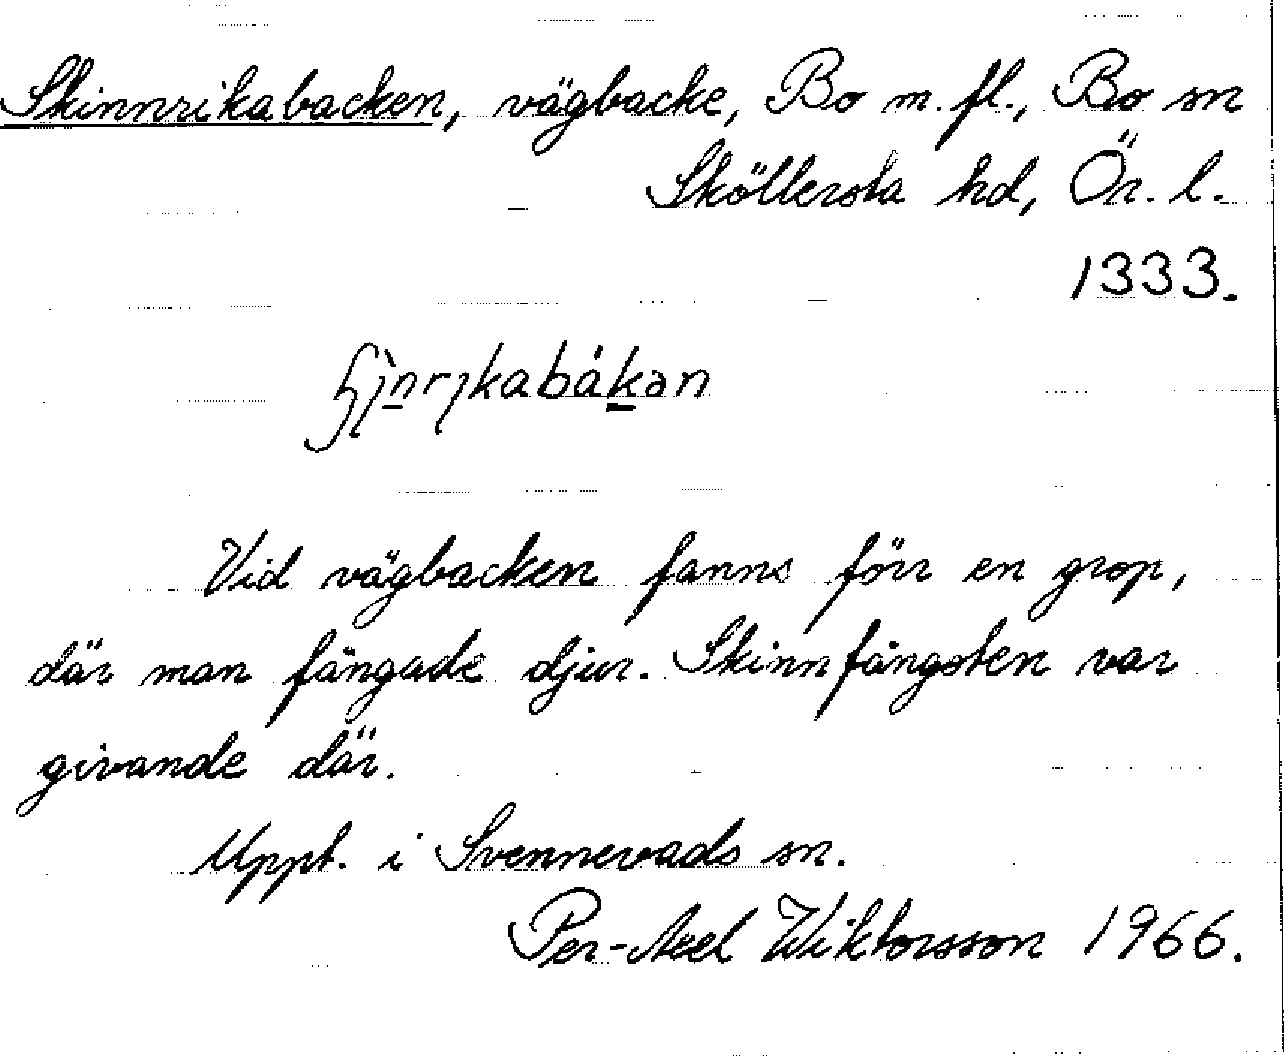 Skinnrikabacken, vägbacke, Bo m. fl., Bo sn
Sköllersta hd, Ör. l.
1333.
Vid vägbacken fanns förr en grop,
där man fångade djur. Skinnfångsten var
givande där.
Uppt. i Svennevads sn.
Per-Axel Wiktorsson 1966.